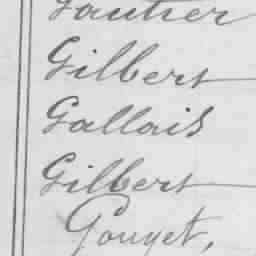 Gautier
Gilbert
Gallais
Gilbert
Gouget,